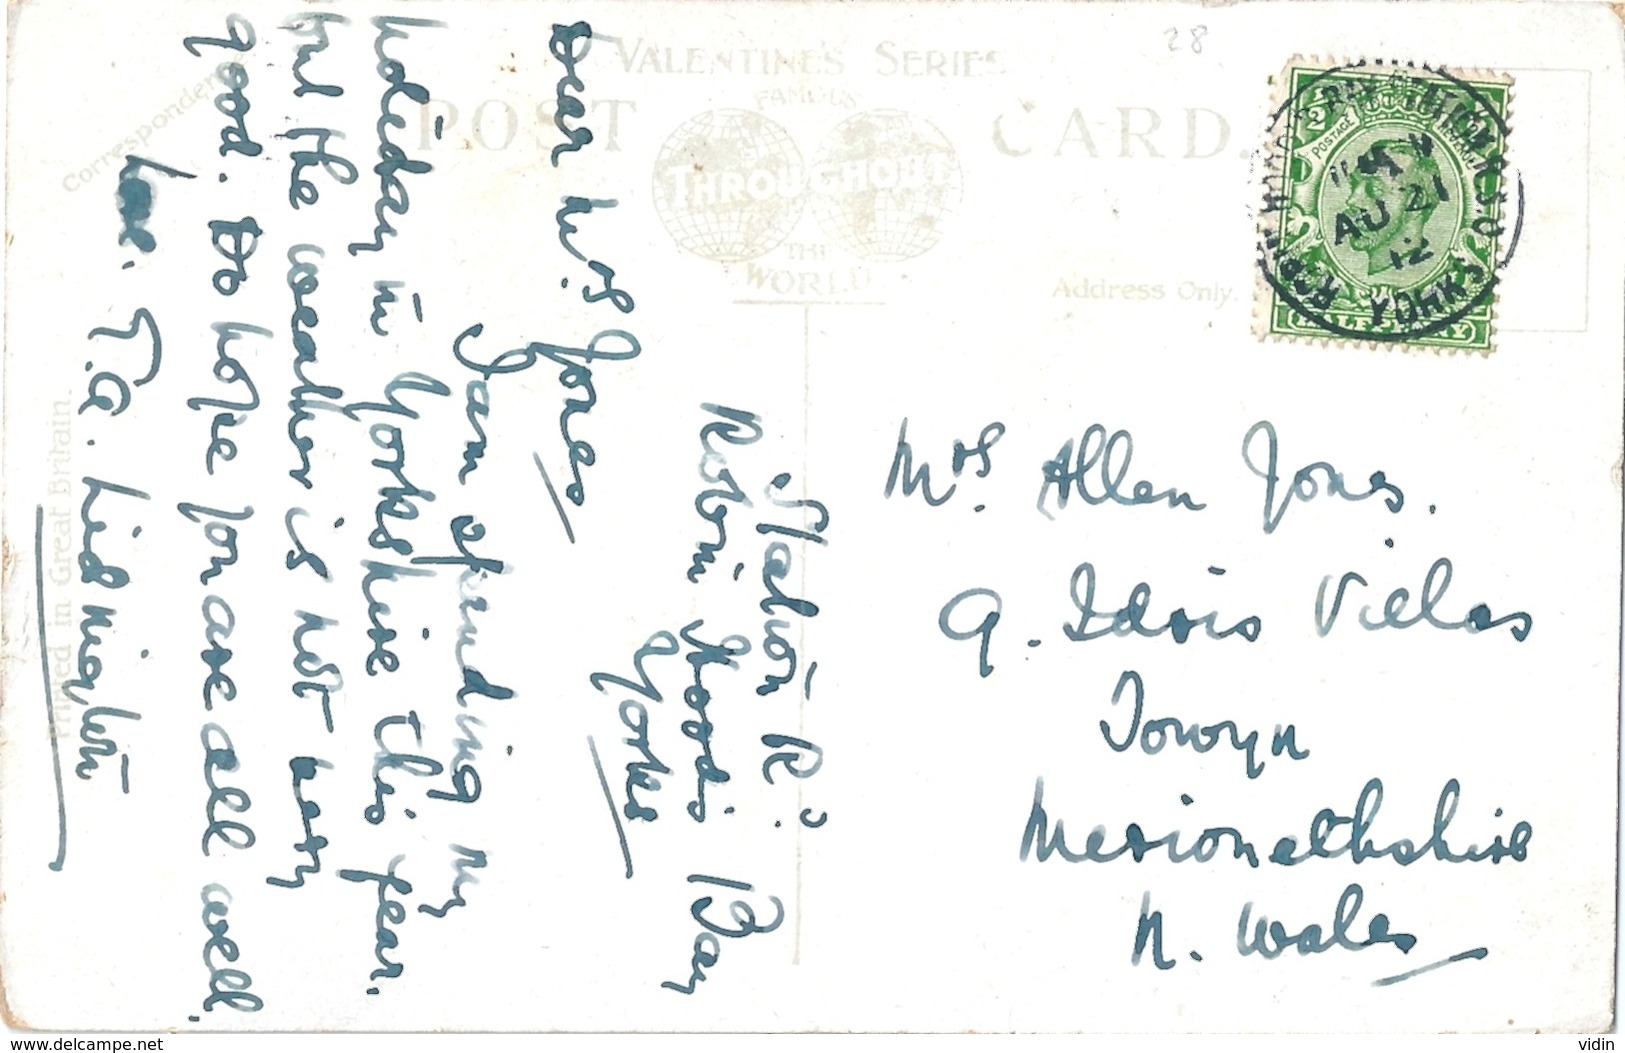 28
VALENTINE'S SERIES
FAMOUS
POST CARD.
THROUGHOUT
THE
WORLD
Correspondence
Address Only.
Printed in Great Britain.
POSTAGE
HALFPENNY
ROBIN HOODS BAY
AU 21
12
YORKS
Station Rd.
Robin Hood's Bay
Yorks
Dear Mrs Jones
I am spending my
holiday in Yorkshire this year.
but the weather is not very
good. Do hope you are all well.
Love.
Mrs. Allen Jones.
9. Idris Villas
Towyn
Merionethshire
N. Wales
www.delcampe.net
vidin